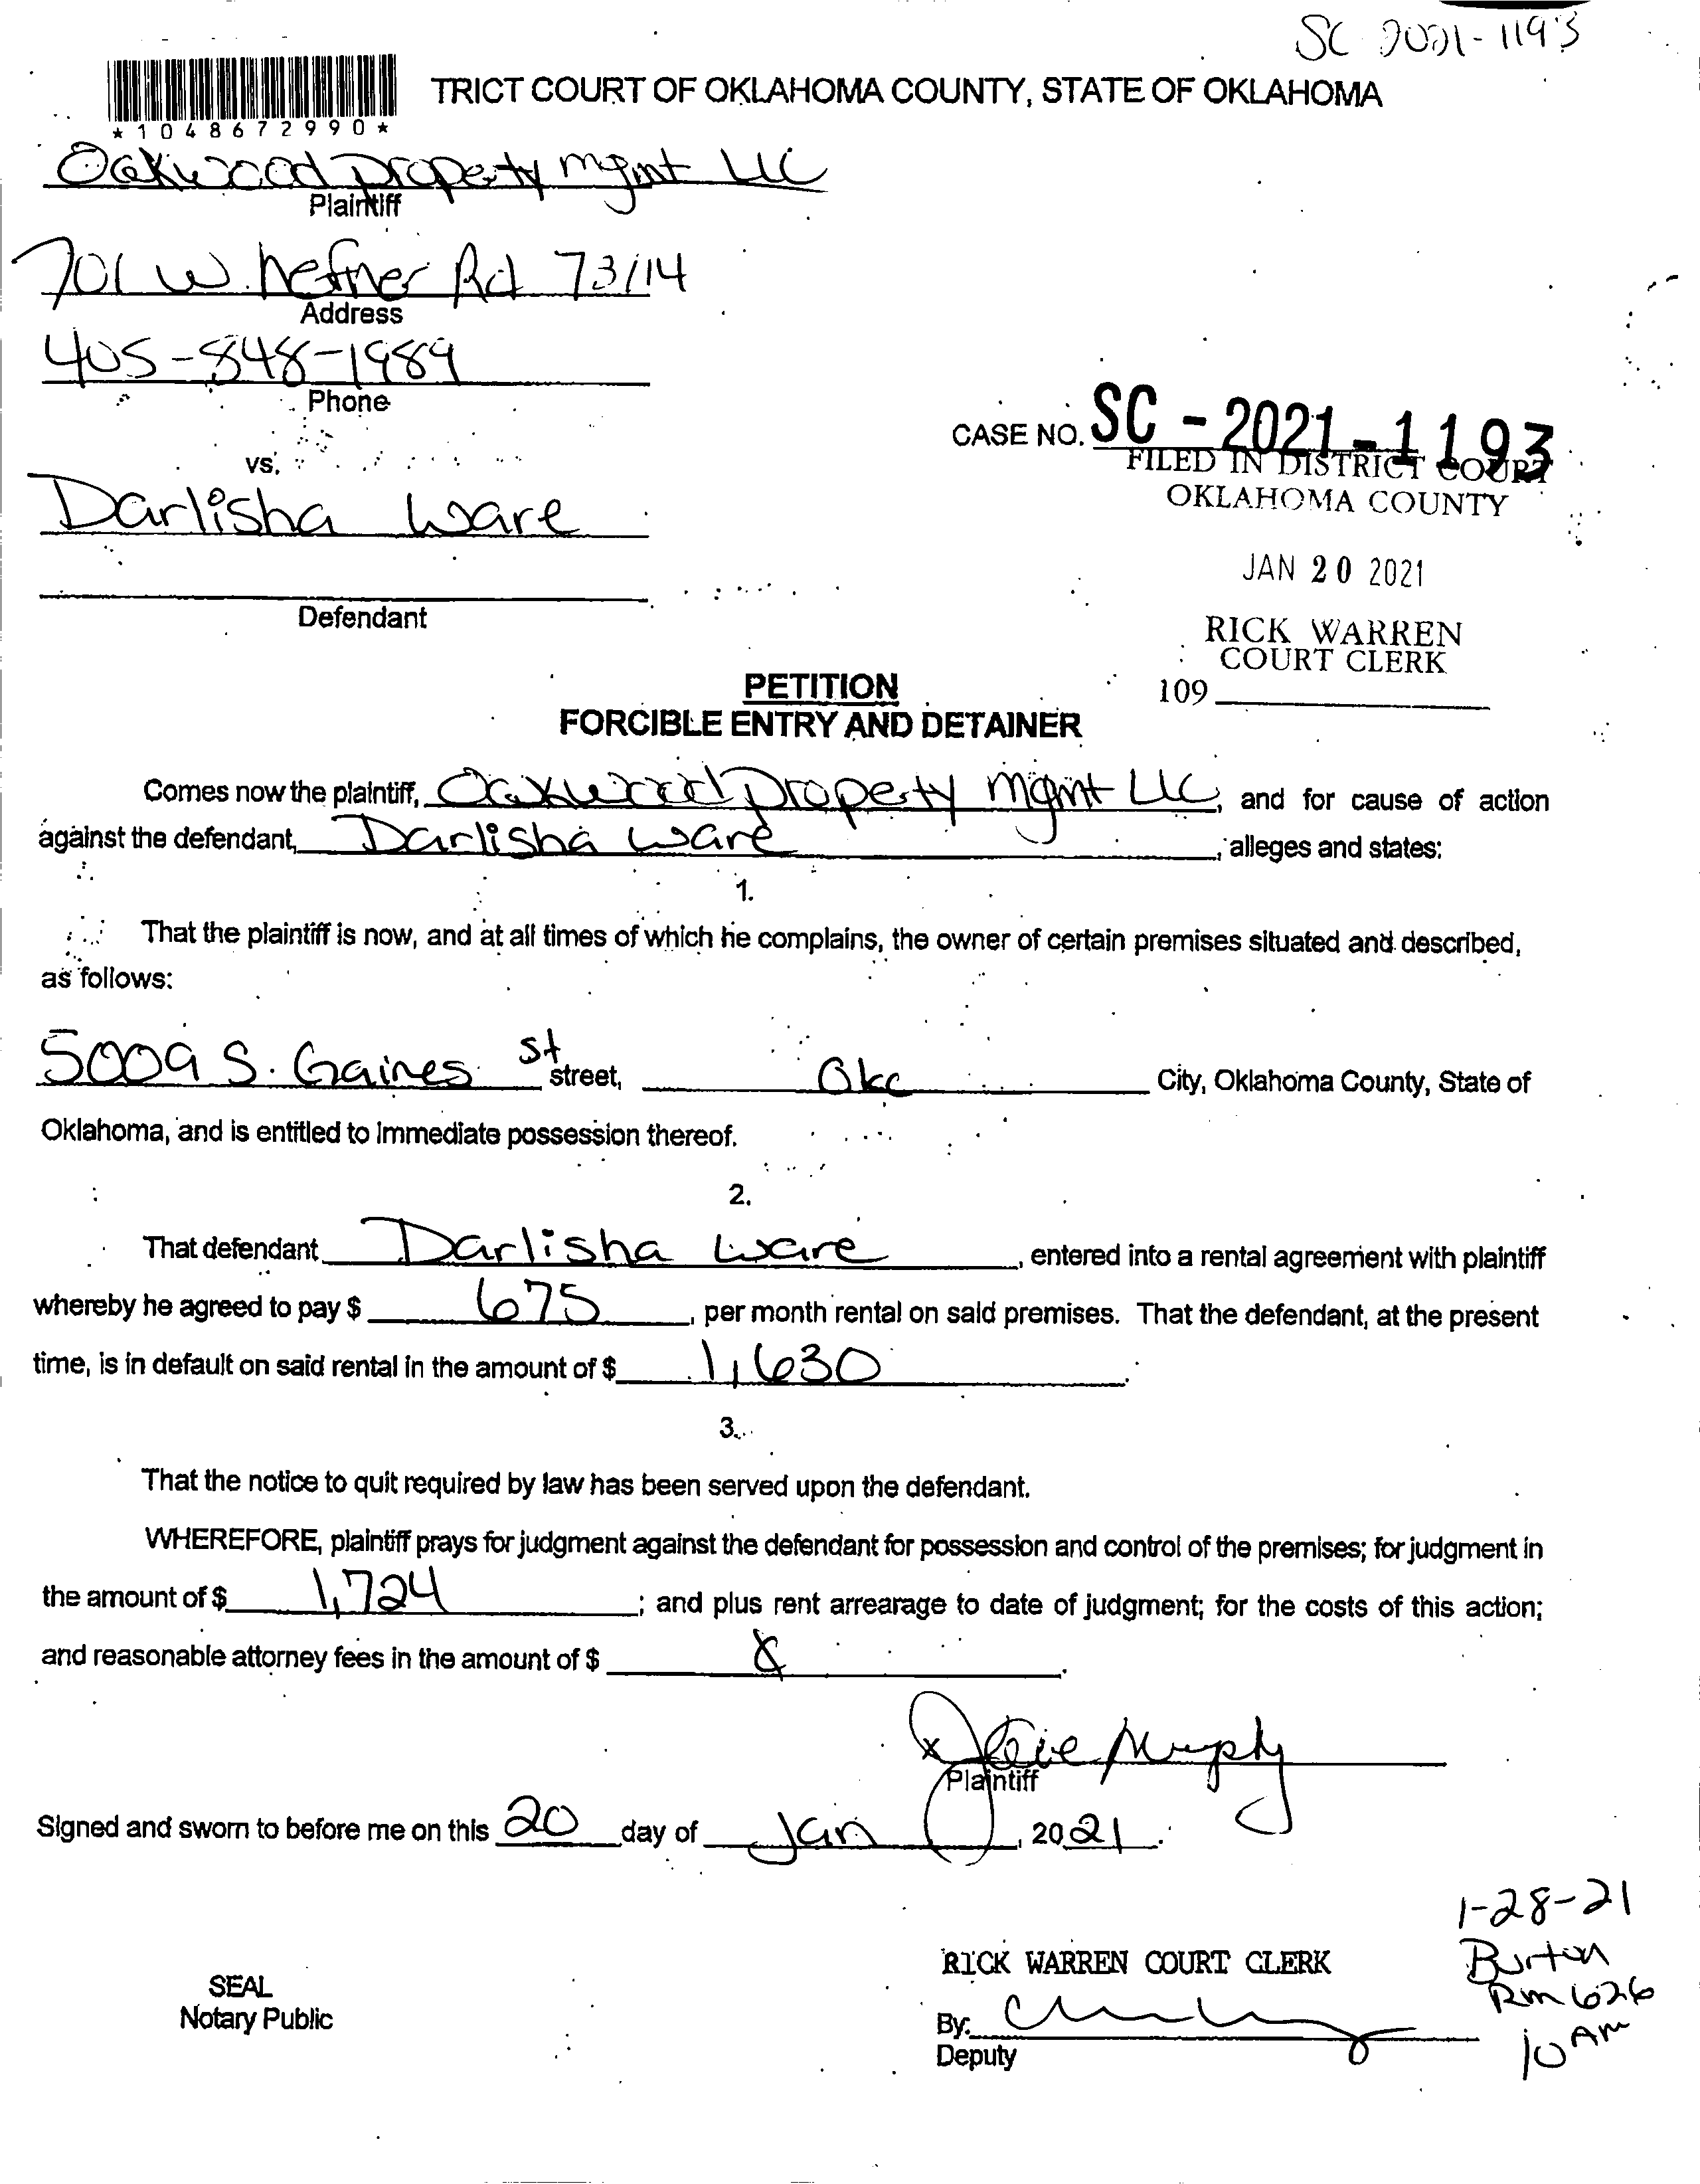 SC 2021-1193
TRICT COURT OF OKLAHOMA COUNTY, STATE OF OKLAHOMA
*1048672990*
Oakwood Property mgmt LLC
Plaintiff
701 W. hefner Rd 73114
Address
405-848-1989
Phone
CASE NO. SC - 2021 - 1193
vs.
FILED IN DISTRICT COURT
OKLAHOMA COUNTY
Darlisha Ware
JAN 20 2021
Defendant
RICK WARREN
COURT CLERK
109
PETITION
FORCIBLE ENTRY AND DETAINER
Comes now the plaintiff, Oakwood Property Mgmt LLC, and for cause of action
against the defendant, Darlisha Ware, alleges and states:
1.
That the plaintiff is now, and at all times of which he complains, the owner of certain premises situated and described,
as follows:
5009 S. Gaines St street, Okc City, Oklahoma County, State of
Oklahoma, and is entitled to immediate possession thereof.
2.
That defendant Darlisha Ware, entered into a rental agreement with plaintiff
whereby he agreed to pay $ 675, per month rental on said premises. That the defendant, at the present
time, is in default on said rental in the amount of $ 1,630.
3.
That the notice to quit required by law has been served upon the defendant.
WHEREFORE, plaintiff prays for judgment against the defendant for possession and control of the premises; for judgment in
the amount of $ 1,724; and plus rent arrearage to date of judgment; for the costs of this action;
and reasonable attorney fees in the amount of $
x Murphy
Plaintiff
Signed and sworn to before me on this 20 day of Jan, 2021.
1-28-21
Burton
Rm 626
10 AM
RICK WARREN COURT CLERK
SEAL
Notary Public
By:
Deputy